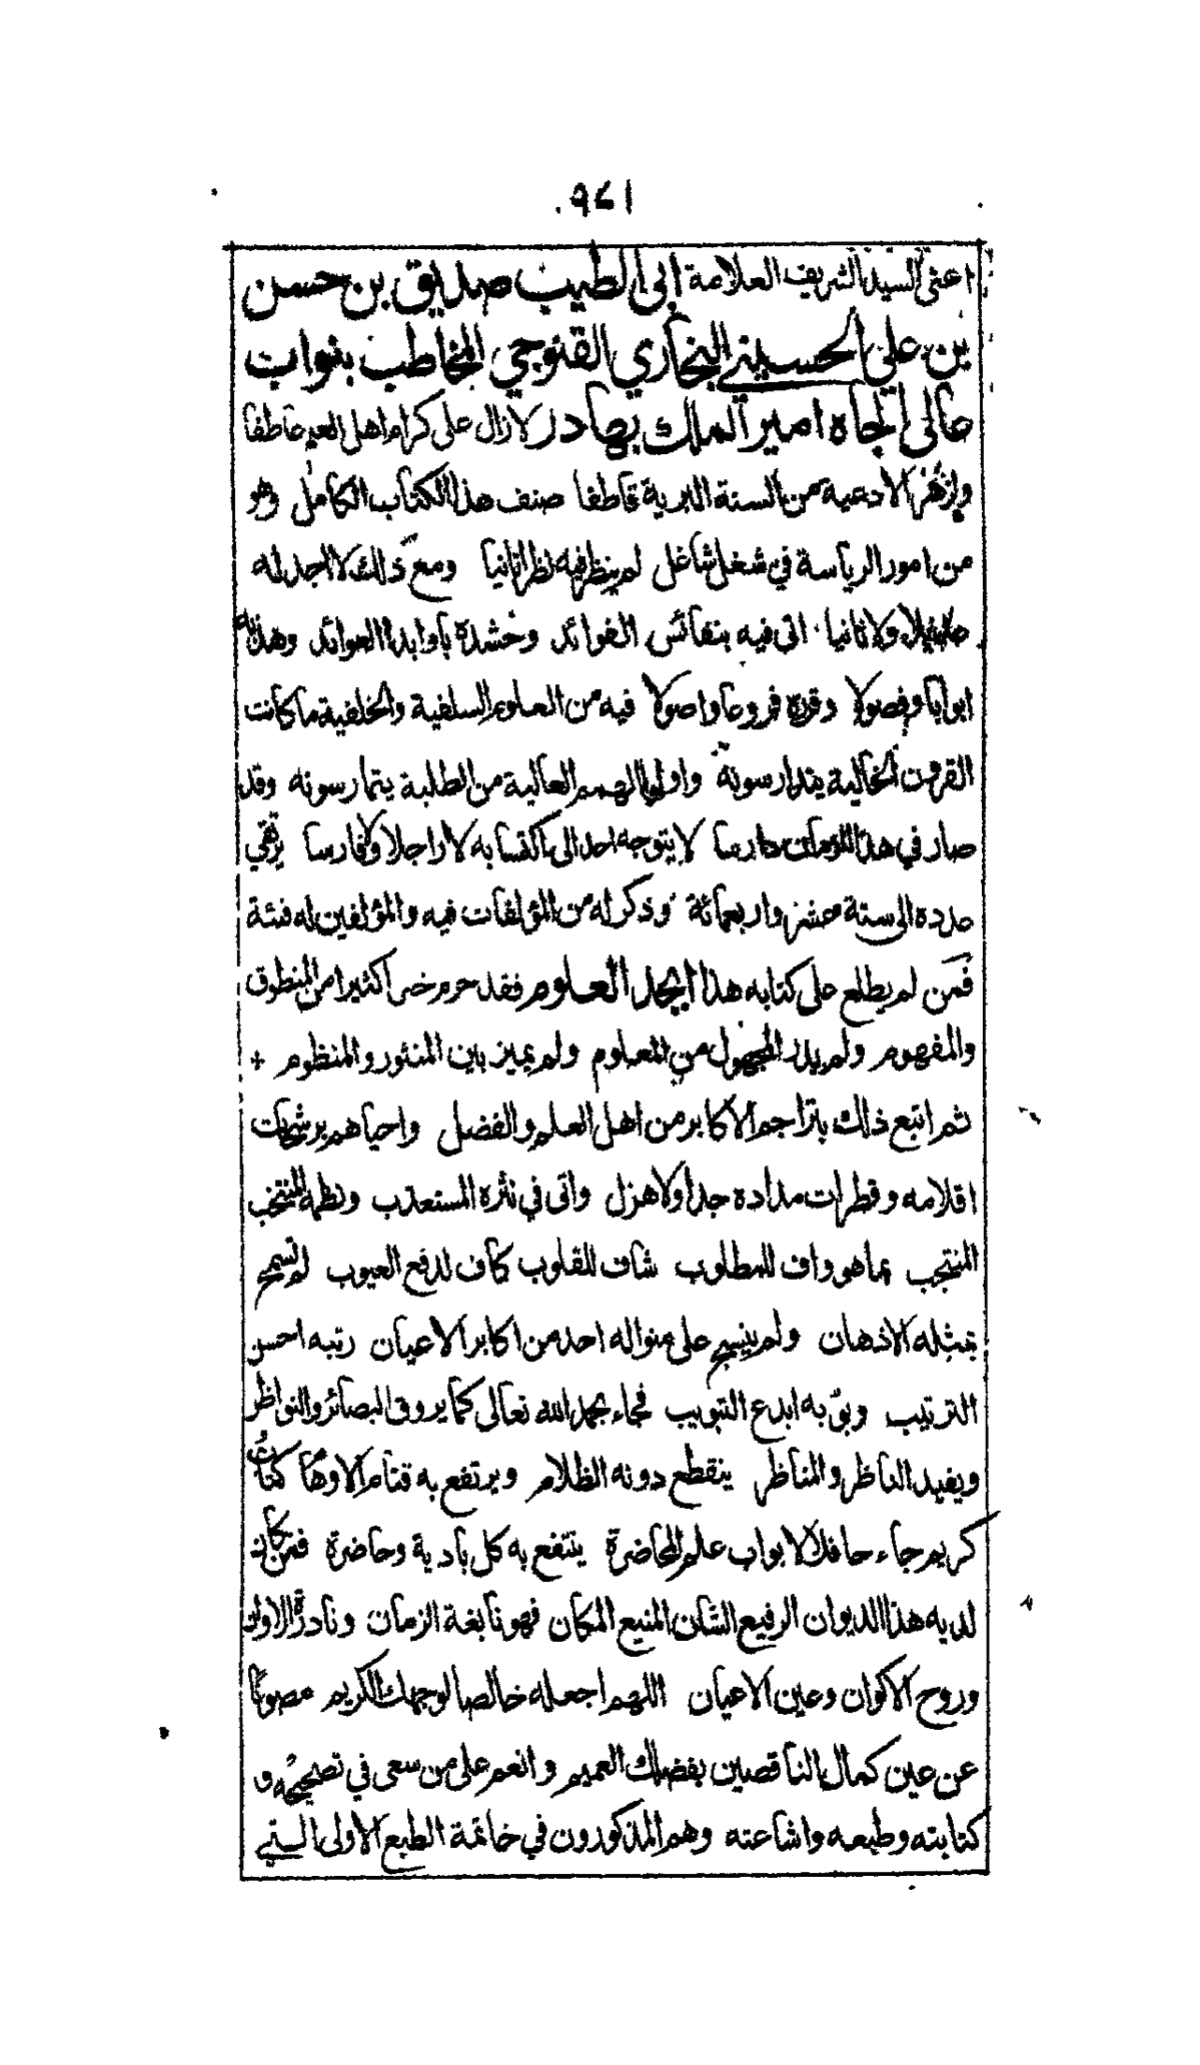 ٩٤١
اعنى السيد الشريف العلامة ابى الطيب صديق بن حسن
بن على الحسينى البخاري القنوجي المخاطب بنواب
عالى الجاه امير الملك بهادر لازال على كرام اهل العلم عاطفا
ولزهر الادعية من السنة البرية قاطفا صنف هذا الكتاب الكامل وهو
من امور الرياسة في شغل شاغل لم ينظر فيه نظرا ثانيا ومع ذلك لا اجد له
مثيلا ولا ثانيا اتى فيه بنفائس الفوائد وحشده باوابد العوائد وهذبه
ابوابا وفصولا وقرره فروعا واصولا فيه من العلوم السلفية والخلفية ما كانت
القرون الخالية يتدارسونه واولوا الهمم العالية من الطلبة يتمارسونه وقد
صار في هذا الزمان دارسا لا يتوجه احد الى اكتسابه لا راجلا ولا فارسا يرتقي
عدده الى ستة عشر واربعمائة وذكر له من المؤلفات فيه والمؤلفين له فئة
فمن لم يطلع على كتابه هذا ابجد العلوم فقد حرم خيرا كثيرا من المنطوق
والمفهوم ولم يدر المجهول من المعلوم ولم يميز بين المنثور والمنظوم +
ثم اتبع ذلك بتراجم الاكابر من اهل العلم والفضل واحياهم برشحات
اقلامه وقطرات مداده جدا ولا هزل واتى في نثره المستعذب ونظمه المنتخب
المنتجب بما هو واف للمطلوب شاف للقلوب كاف لدفع العيوب لم تسمح
بمثله الاذهان ولم ينسج على منواله احد من اكابر الاعيان رتبه احسن
الترتيب وبوبه ابدع التبويب فجاء بحمد الله تعالى كما يروق البصائر والنواظر
ويفيد الناظر والمناظر ينقطع دونه الظلام ويرتفع به قتام الاوهام كتاب
كريم جاء حافلا لابواب علم المحاضرة ينتفع به كل بادية وحاضرة فمن كان
لديه هذا الديوان الرفيع الشان المنيع المكان فهو نابغة الزمان ونادرة الاوان
وروح الاكوان وعين الاعيان اللهم اجعله خالصا لوجهك الكريم مصونا
عن عين كمال الناقصين بفضلك العميم وانعم على من سعى في تصحيحه و
كتابته وطبعه واشاعته وهم المذكورون في خاتمة الطبع الاولى التي